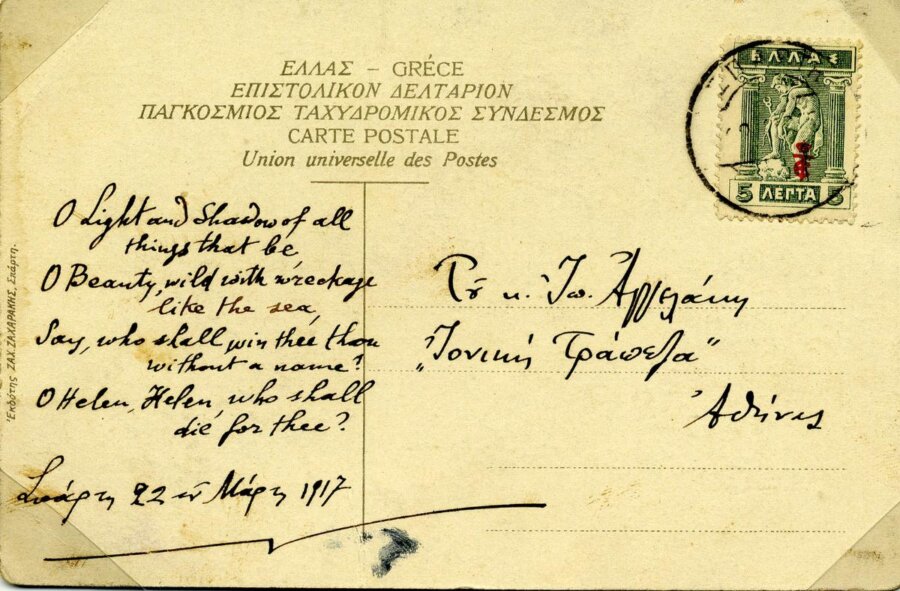 ΕΛΛΑΣ – GRÉCE
ΕΠΙΣΤΟΛΙΚΟΝ ΔΕΛΤΑΡΙΟΝ
ΠΑΓΚΟΣΜΙΟΣ ΤΑΧΥΔΡΟΜΙΚΟΣ ΣΥΝΔΕΣΜΟΣ
CARTE POSTALE
Union universelle des Postes
ΕΛΛΑΣ
5 ΛΕΠΤΑ 5
O Light and Shadow of all
things that be
O Beauty, wild with wreckage
like the sea,
Say, who shall win thee thou
without a name?
O Helen, Helen, who shall
die for thee?
Σπάρτη 22 Μάρτη 1917
κ. Ἰω. Ἀγγελάκη
„Ἰονική Τράπεζα"
Ἀθήνας
Ἐκδότης ΖΑΧ. ΖΑΧΑΡΑΚΗΣ, Σπάρτη.